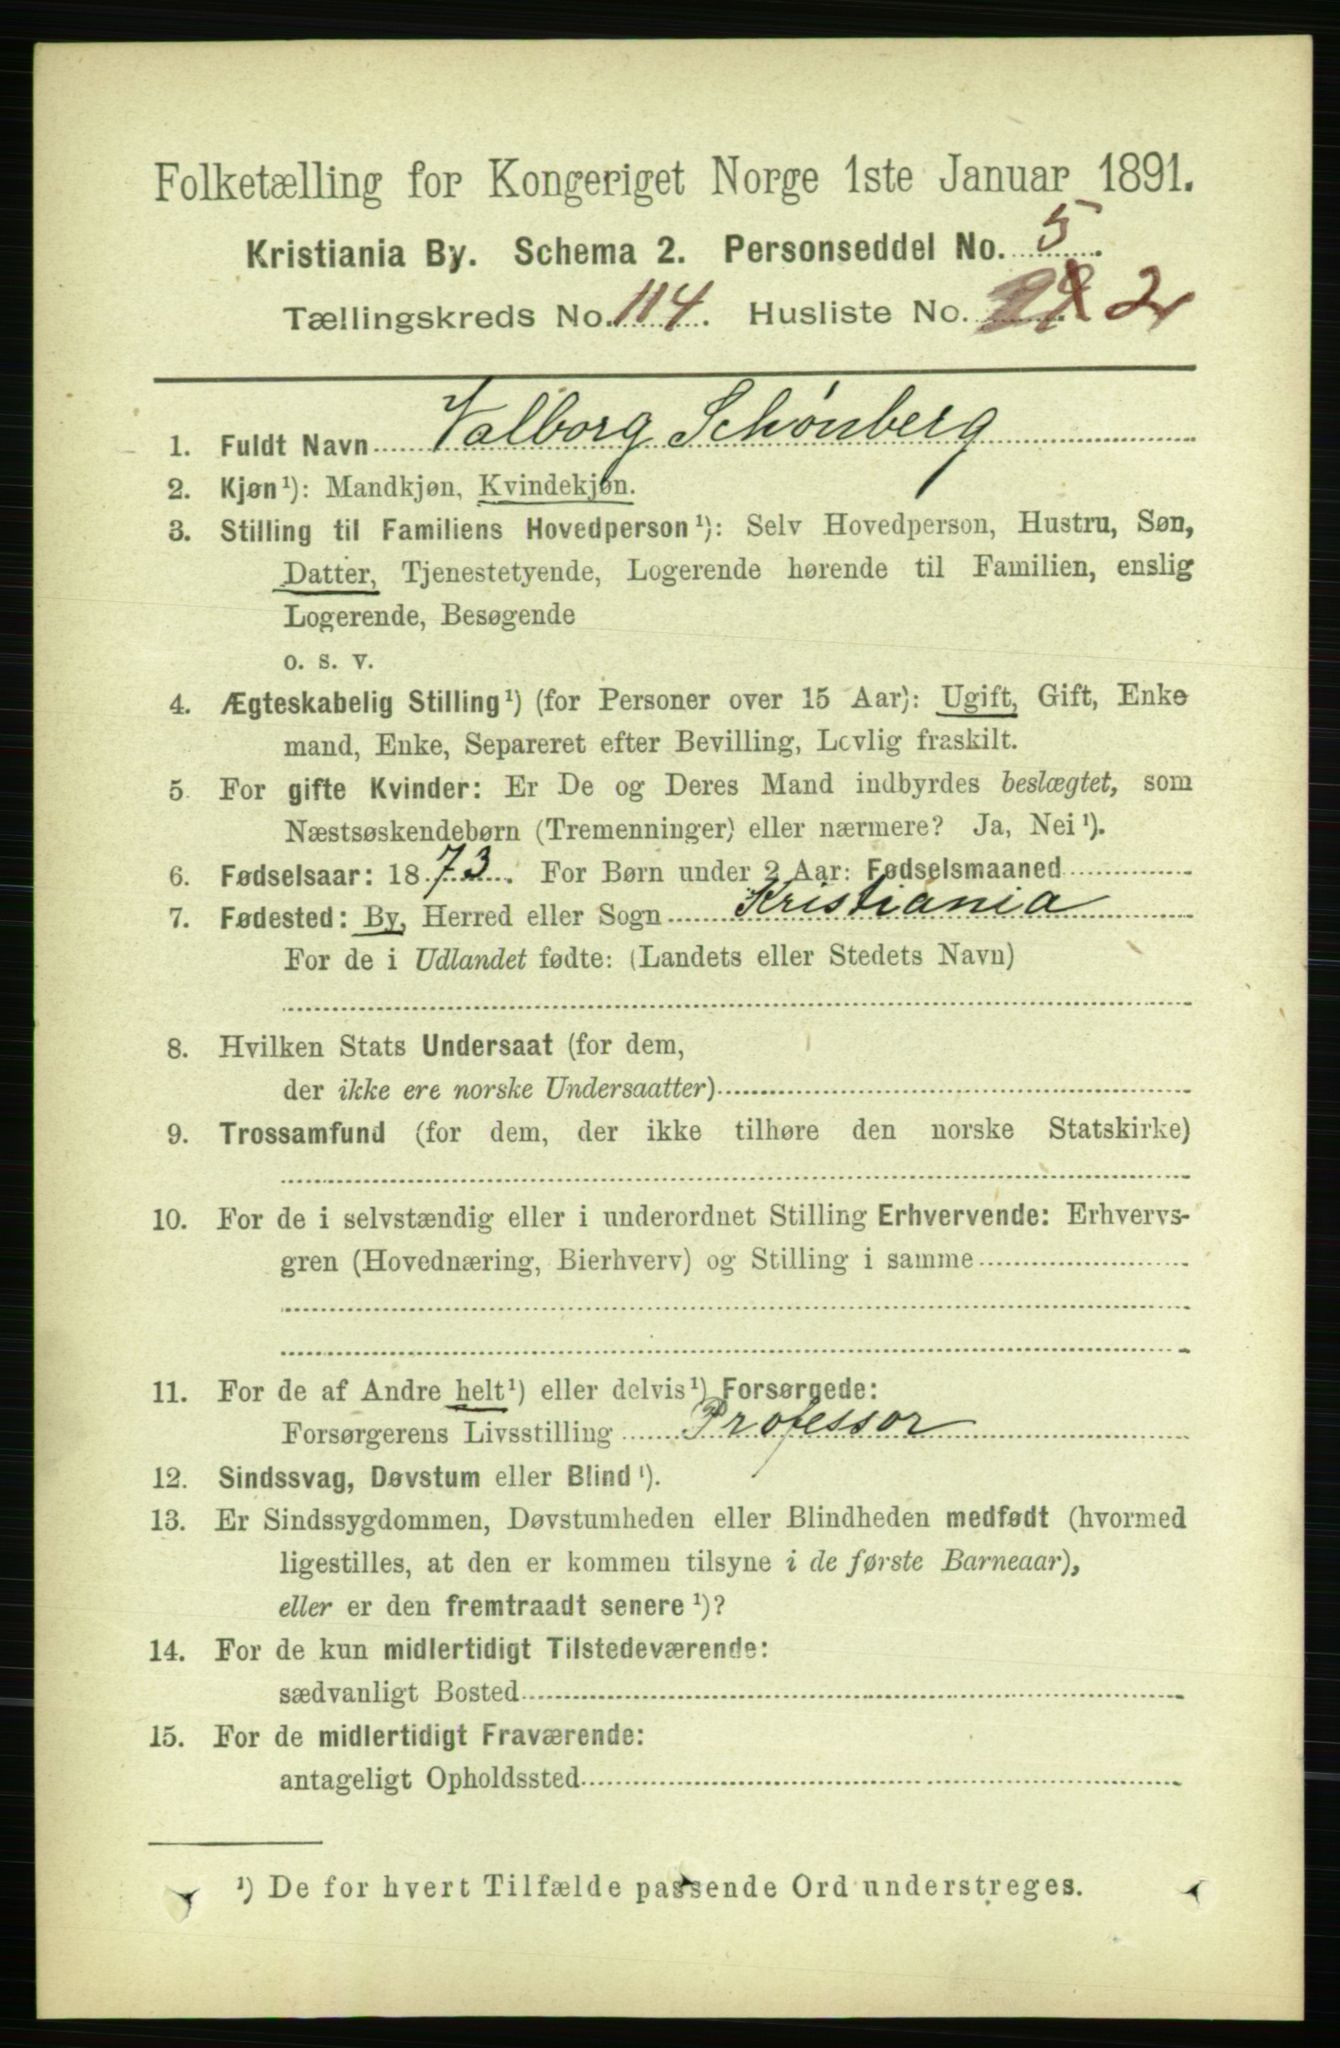 Folketælling for Kongeriget Norge 1ste Januar 1891.
Kristiania By. Schema 2. Personseddel No. 5.
Tællingskreds No. 114. Husliste No. 2
1. Fuldt Navn Valborg Schønberg
2. Kjøn¹): Mandkjøn, Kvindekjøn.
3. Stilling til Familiens Hovedperson¹): Selv Hovedperson, Hustru, Søn,
Datter, Tjenestetyende, Logerende hørende til Familien, enslig
Logerende, Besøgende
o. s. v.
4. Ægteskabelig Stilling¹) (for Personer over 15 Aar): Ugift, Gift, Enke
mand, Enke, Separeret efter Bevilling, Lovlig fraskilt.
5 For gifte Kvinder: Er De og Deres Mand indbyrdes beslægtet, som
Næstsøskendebørn (Tremenninger) eller nærmere? Ja, Nei¹).
6. Fødselsaar: 1873. For Børn under 2 Aar: Fødselsmaaned
7. Fødested: By, Herred eller Sogn Kristiania
For de i Udlandet fødte: (Landets eller Stedets Navn)
8. Hvilken Stats Undersaat (for dem,
der ikke ere norske Undersaatter)
9. Trossamfund (for dem, der ikke tilhøre den norske Statskirke)
10. For de i selvstændig eller i underordnet Stilling Erhvervende: Erhvervs-
gren (Hovednæring, Bierhverv) og Stilling i samme
11. For de af Andre helt¹) eller delvis¹) Forsørgede:
Forsørgerens Livsstilling Professor
12. Sindssvag, Døvstum eller Blind¹).
13. Er Sindssygdommen, Døvstumheden eller Blindheden medfødt (hvormed
ligestilles, at den er kommen tilsyne i de første Barneaar),
eller er den fremtraadt senere¹)?
14. For de kun midlertidigt Tilstedeværende:
sædvanligt Bosted
15. For de midlertidigt Fraværende:
antageligt Opholdssted
¹) De for hvert Tilfælde passende Ord understreges.